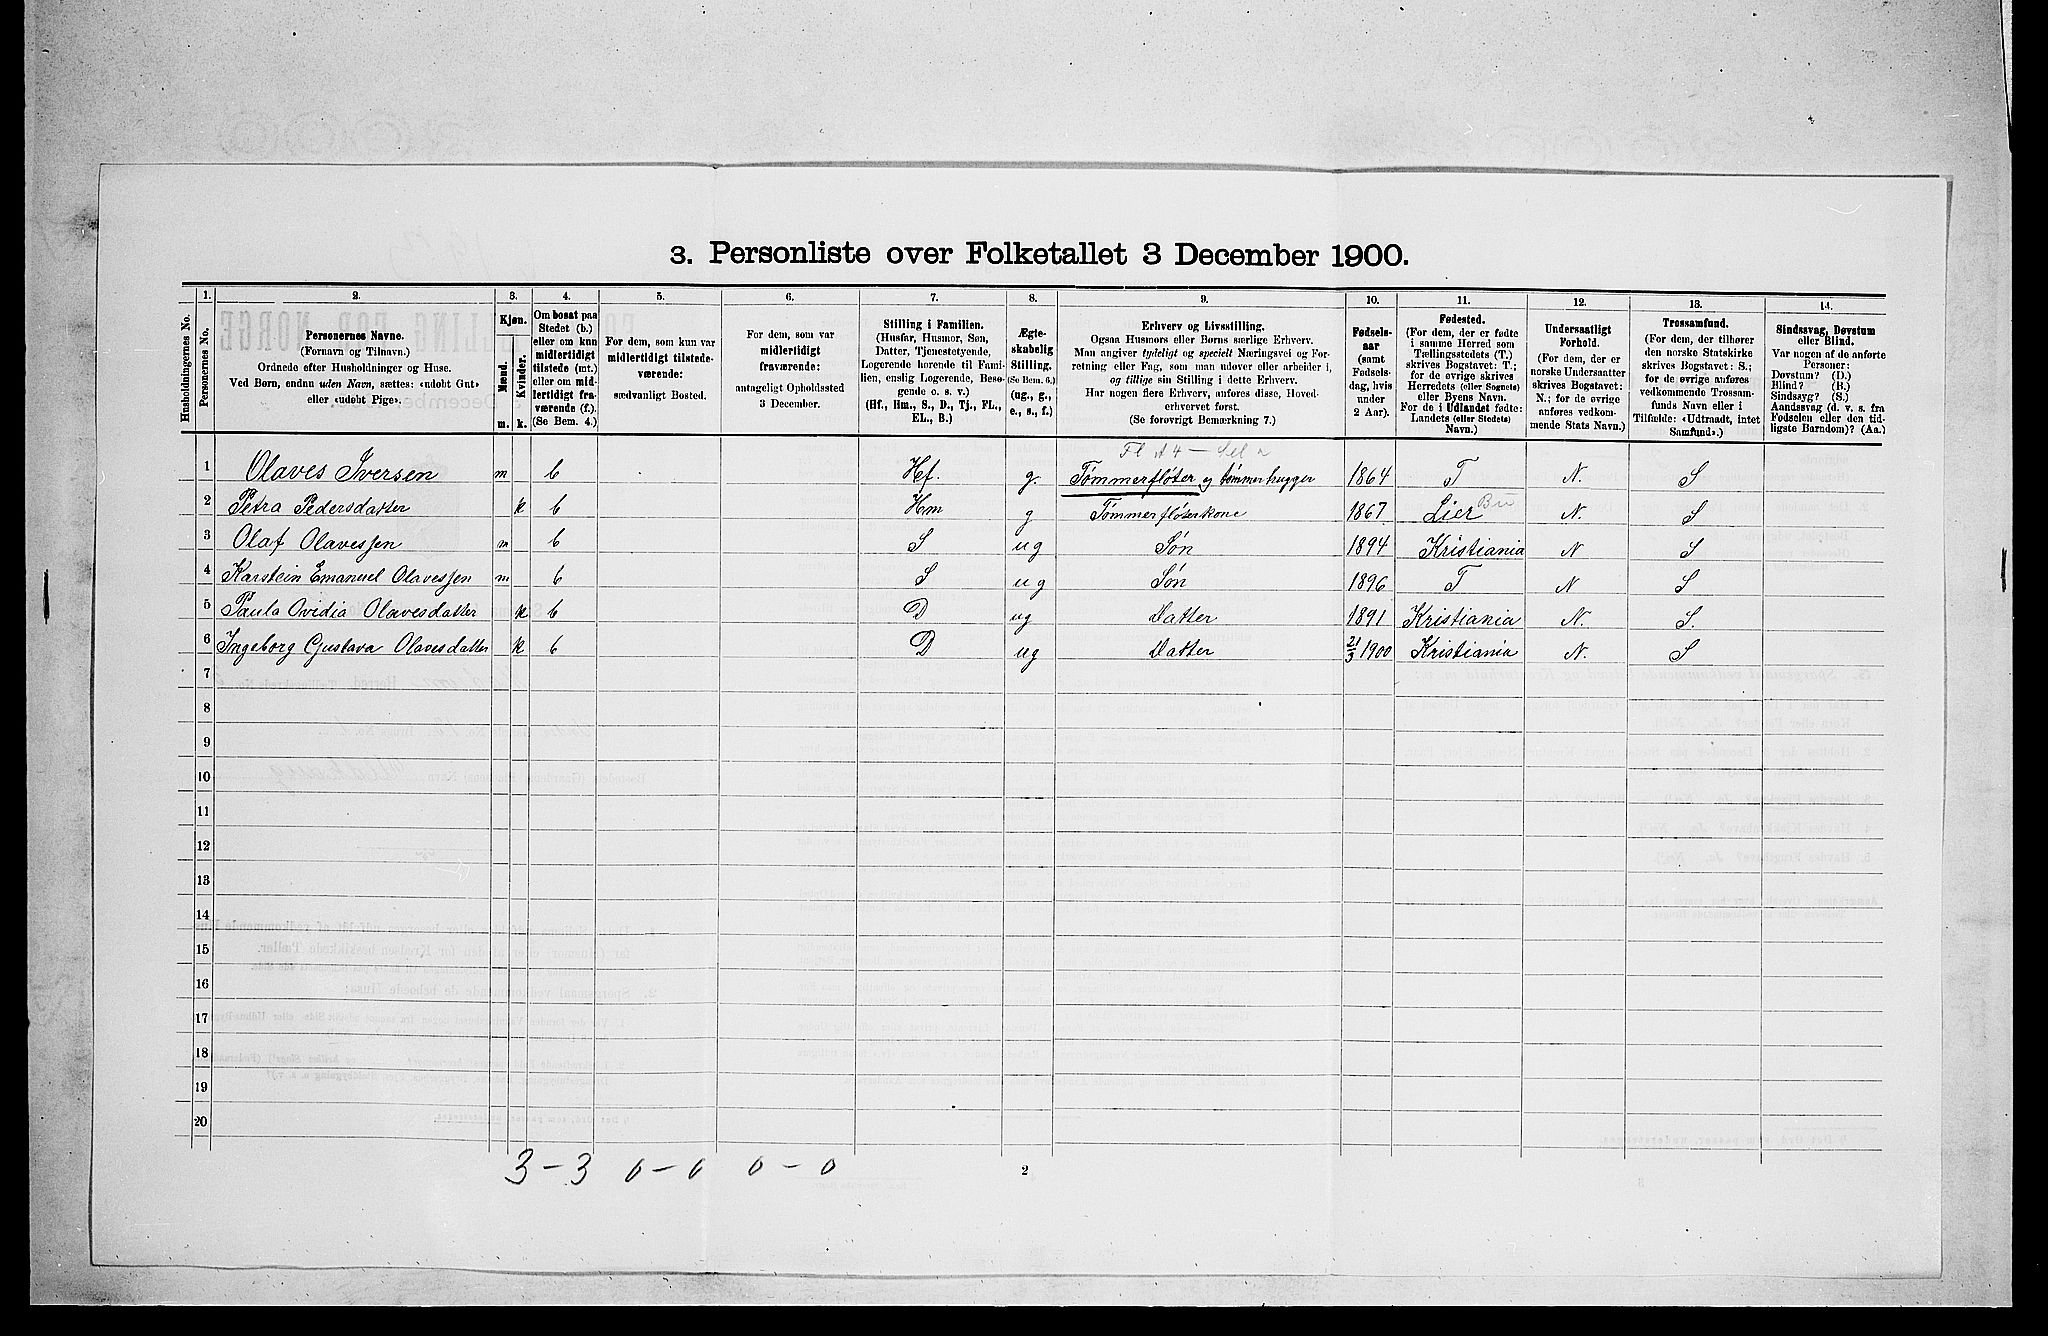 3. Personliste over Folketallet 3 December 1900.
Husholdningernes No.
1.
Personernes No.
2.
Personernes Navne.
(Fornavn og Tilnavn.)
Ordnede efter Husholdninger og Huse.
Ved Børn, endnu uden Navn, sættes: «udøbt Gut»
eller «udøbt Pige».
3.
Kjøn.
Mænd.
Kvinder.
m.
k.
4.
Om bosat paa
Stedet (b.)
eller om kun
midlertidigt
tilstede (mt.)
eller om mid-
lertidigt fra-
værende (f.).
(Se Bem. 4.)
5.
For dem, som kun var
midlertidigt tilstede-
værende:
sædvanligt Bosted.
6.
For dem, som var
midlertidigt
fraværende:
antageligt Opholdssted
3 December.
7.
Stilling i Familien.
(Husfar, Husmor, Søn,
Datter, Tjenestetyende,
Logerende hørende til Fami-
lien, enslig Logerende, Besø-
gende o. s. v.)
(Hf., Hm., S., D., Tj., FL.,
EL., B.)
8.
Ægte-
skabelig
Stilling.
(Se Bem. 6.)
(ug., g.,
e., s., f.)
9.
Erhverv og Livsstilling.
Ogsaa Husmors eller Børns særlige Erhverv.
Man angiver tydeligt og specielt Næringsvei og For-
retning eller Fag, som man udøver eller arbeider i,
og tillige sin Stilling i dette Erhverv.
Har nogen flere Erhverv, anføres disse, Hoved-
erhvervet først.
(Se forøvrigt Bemærkning 7.)
10.
Fødsels-
aar
(samt
Fødsels-
dag, hvis
under
2 Aar).
11.
Fødested.
(For dem, der er fødte
i samme Herred som
Tællingsstedets (T.)
skrives Bogstavet: T.;
for de øvrige skrives
Herredets (eller Sognets)
eller Byens Navn.
For de i Udlandet fødte:
Landets (eller Stedets)
Navn.)
12.
Undersaatligt
Forhold.
(For dem, der er
norske Undersaatter
skrives Bogstavet:
N.; for de øvrige
anføres vedkom-
mende Stats Navn.)
13.
Trossamfund.
(For dem, der tilhører
den norske Statskirke
skrives Bogstavet: S.;
for de øvrige anføres
vedkommende Trossam-
funds Navn eller i
Tilfælde: «Udtraadt, intet
Samfund».)
14.
Sindssvag, Døvstum
eller Blind.
Var nogen af de anførte
Personer:
Døvstum? (D.)
Blind? (B.)
Sindssyg? (S.)
Aandssvag (d. v. s. fra
Fødselen eller den tid-
ligste Barndom)? (Aa.)
1 Olaves Iversen m b Hf. g. Tømmerfløter og tømmerhugger 1864 T N. S
2 Petra Pedersdatter k b Hm g Tømmerfløterkone 1867 Lier Bu N. S
3 Olaf Olavessen m b S ug Søn 1894 Kristiania N S
4 Karstein Emanuel Olavessen m b S ug Søn 1896 T N S
5 Paula Ovidia Olavesdatter k b D ug Datter 1891 Kristiania N. S.
6 Ingeborg Gustava Olavesdatter k b D ug Datter 21/3 1900 Kristiania N. S
7
8
9
10
11
12
13
14
15
16
17
18
19
20
3 – 3 0 – 0 0 – 0
2